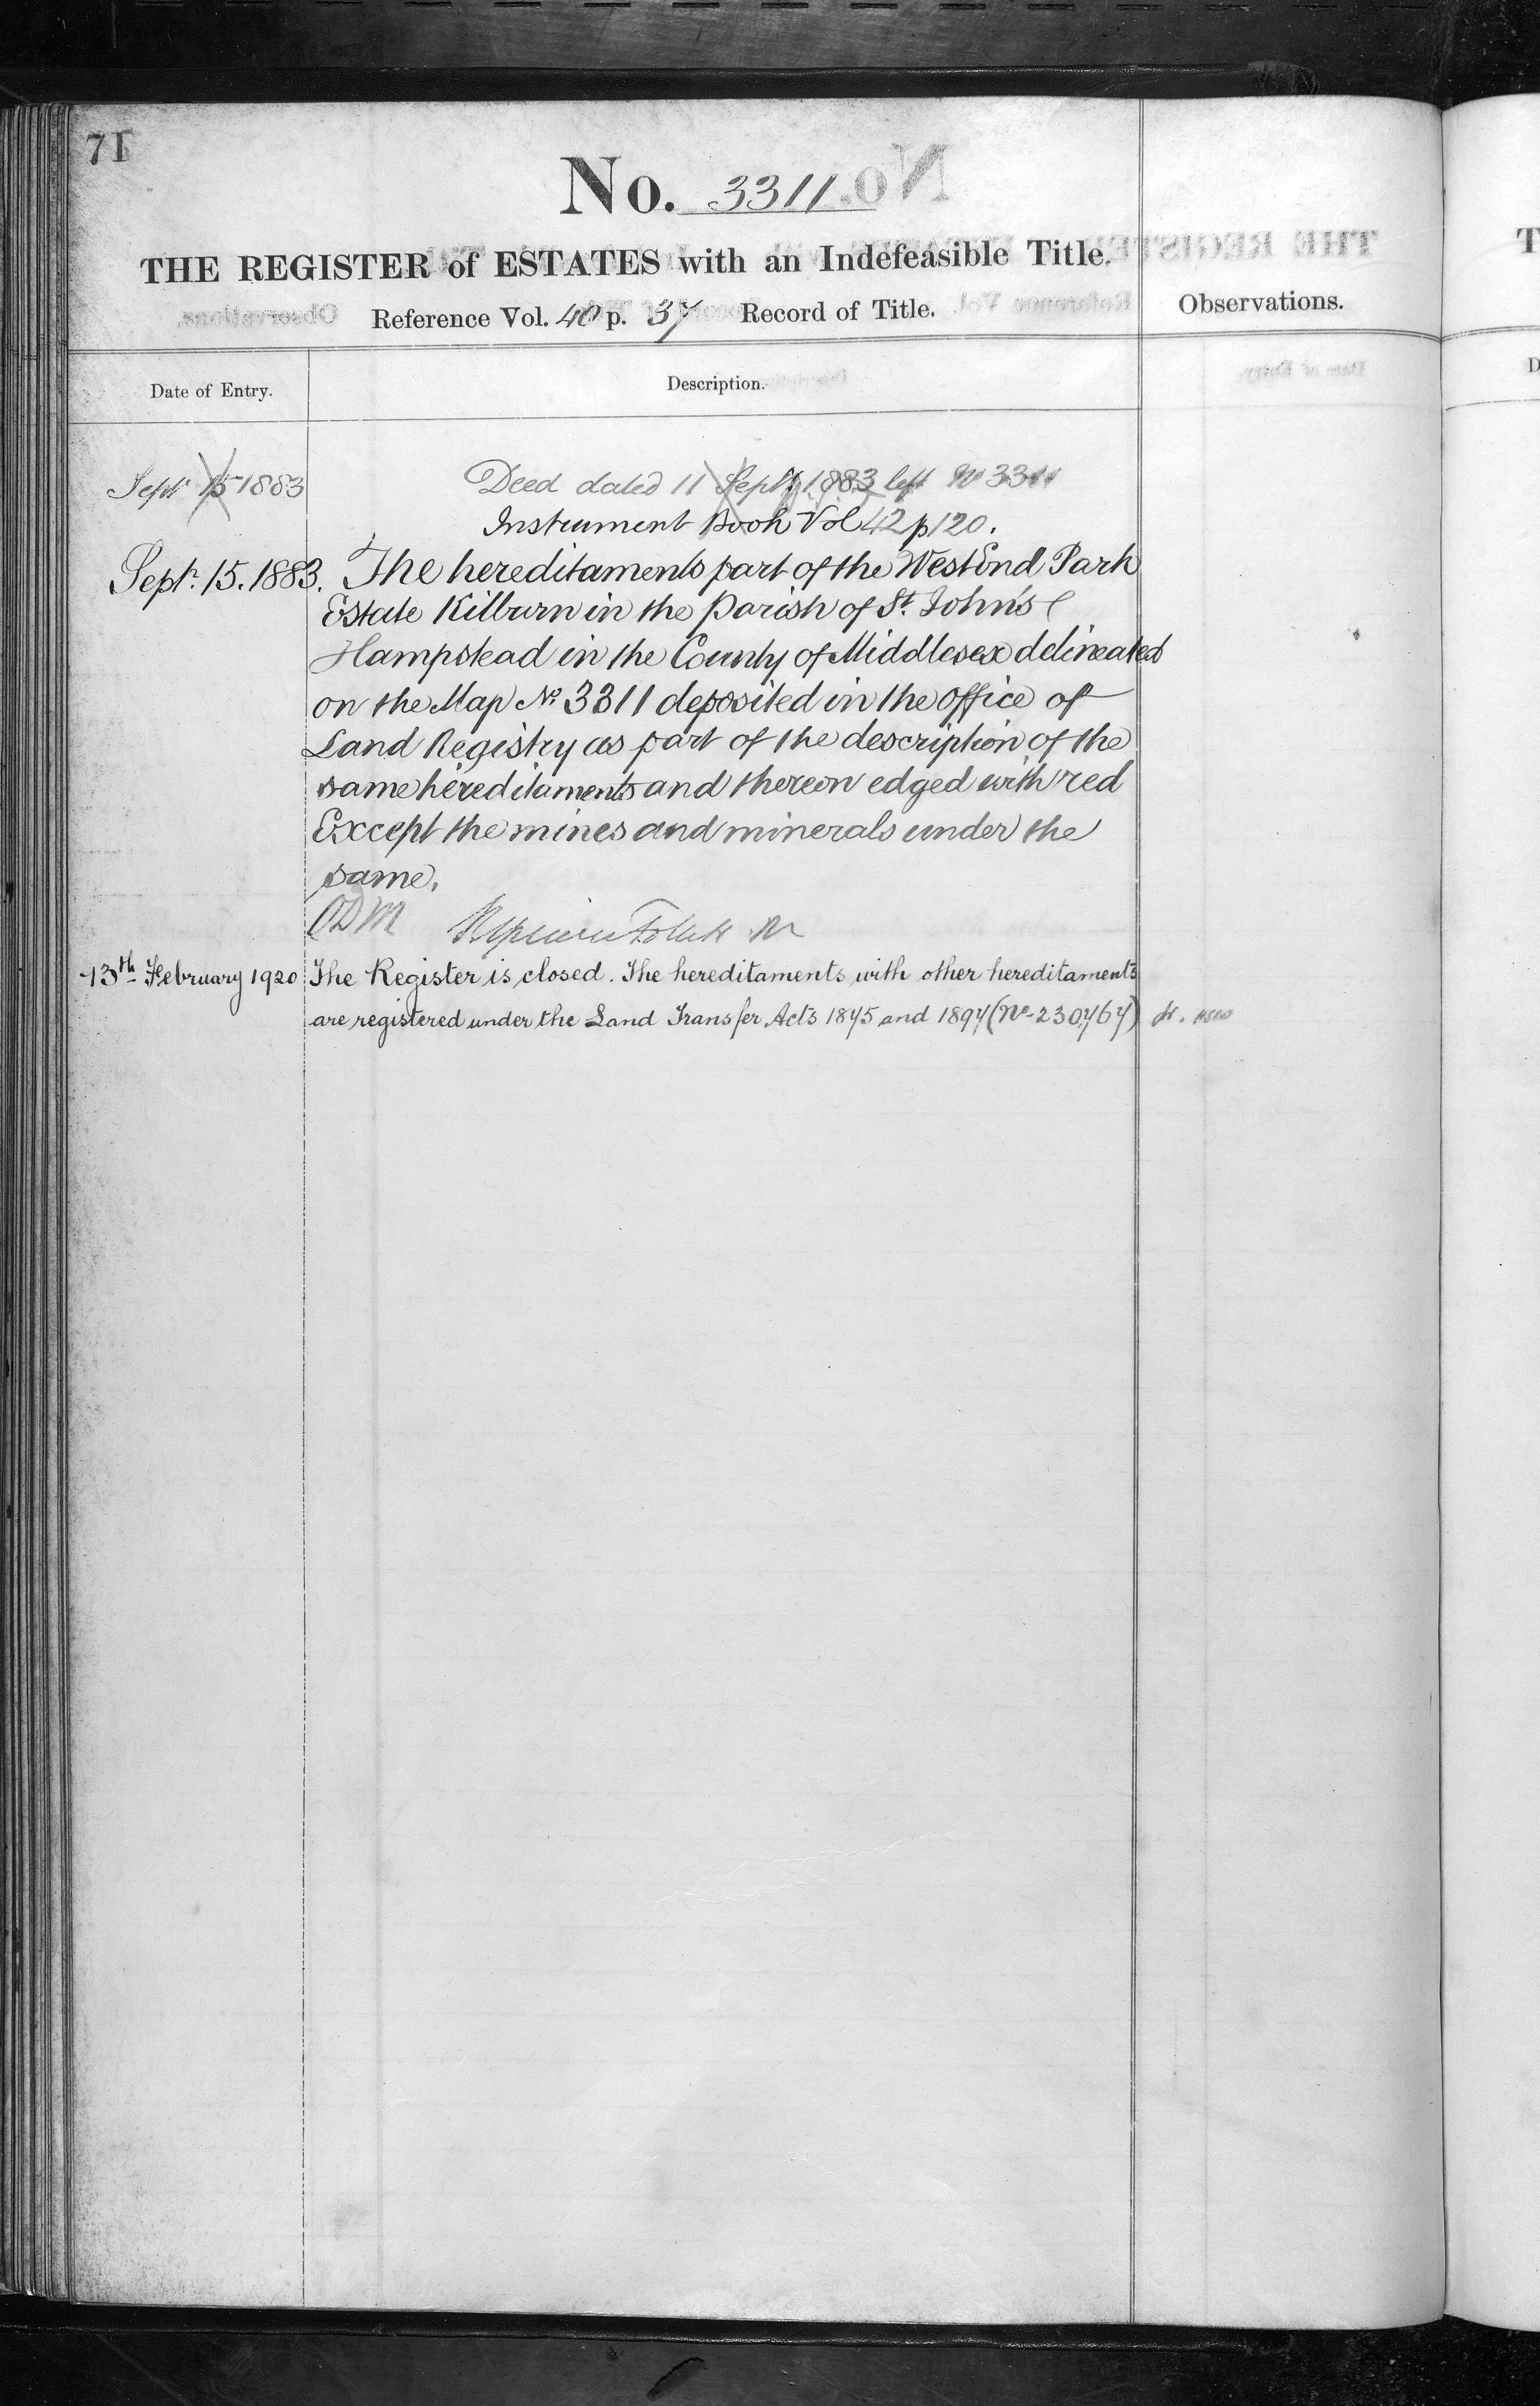 71
No. 3311
THE REGISTER of ESTATES with an Indefeasible Title.
Reference Vol. 40 p. 37 Record of Title.
Observations.
Date of Entry.
Description.
Sept 15 1883
Deed dated 11 Sept 1883 left No 3311
Instrument Book Vol 42 p 120.
Sept. 15. 1883. The hereditaments part of the West End Park
Estate Kilburn in the Parish of St. John's
Hampstead in the County of Middlesex delineated
on the Map No. 3311 deposited in the office of
Land Registry as part of the description of the
same hereditaments and thereon edged with red
Except the mines and minerals under the
same.
13th February 1920 The Register is closed. The hereditaments with other hereditaments
are registered under the Land Transfer Acts 1875 and 1897 (No 230767)